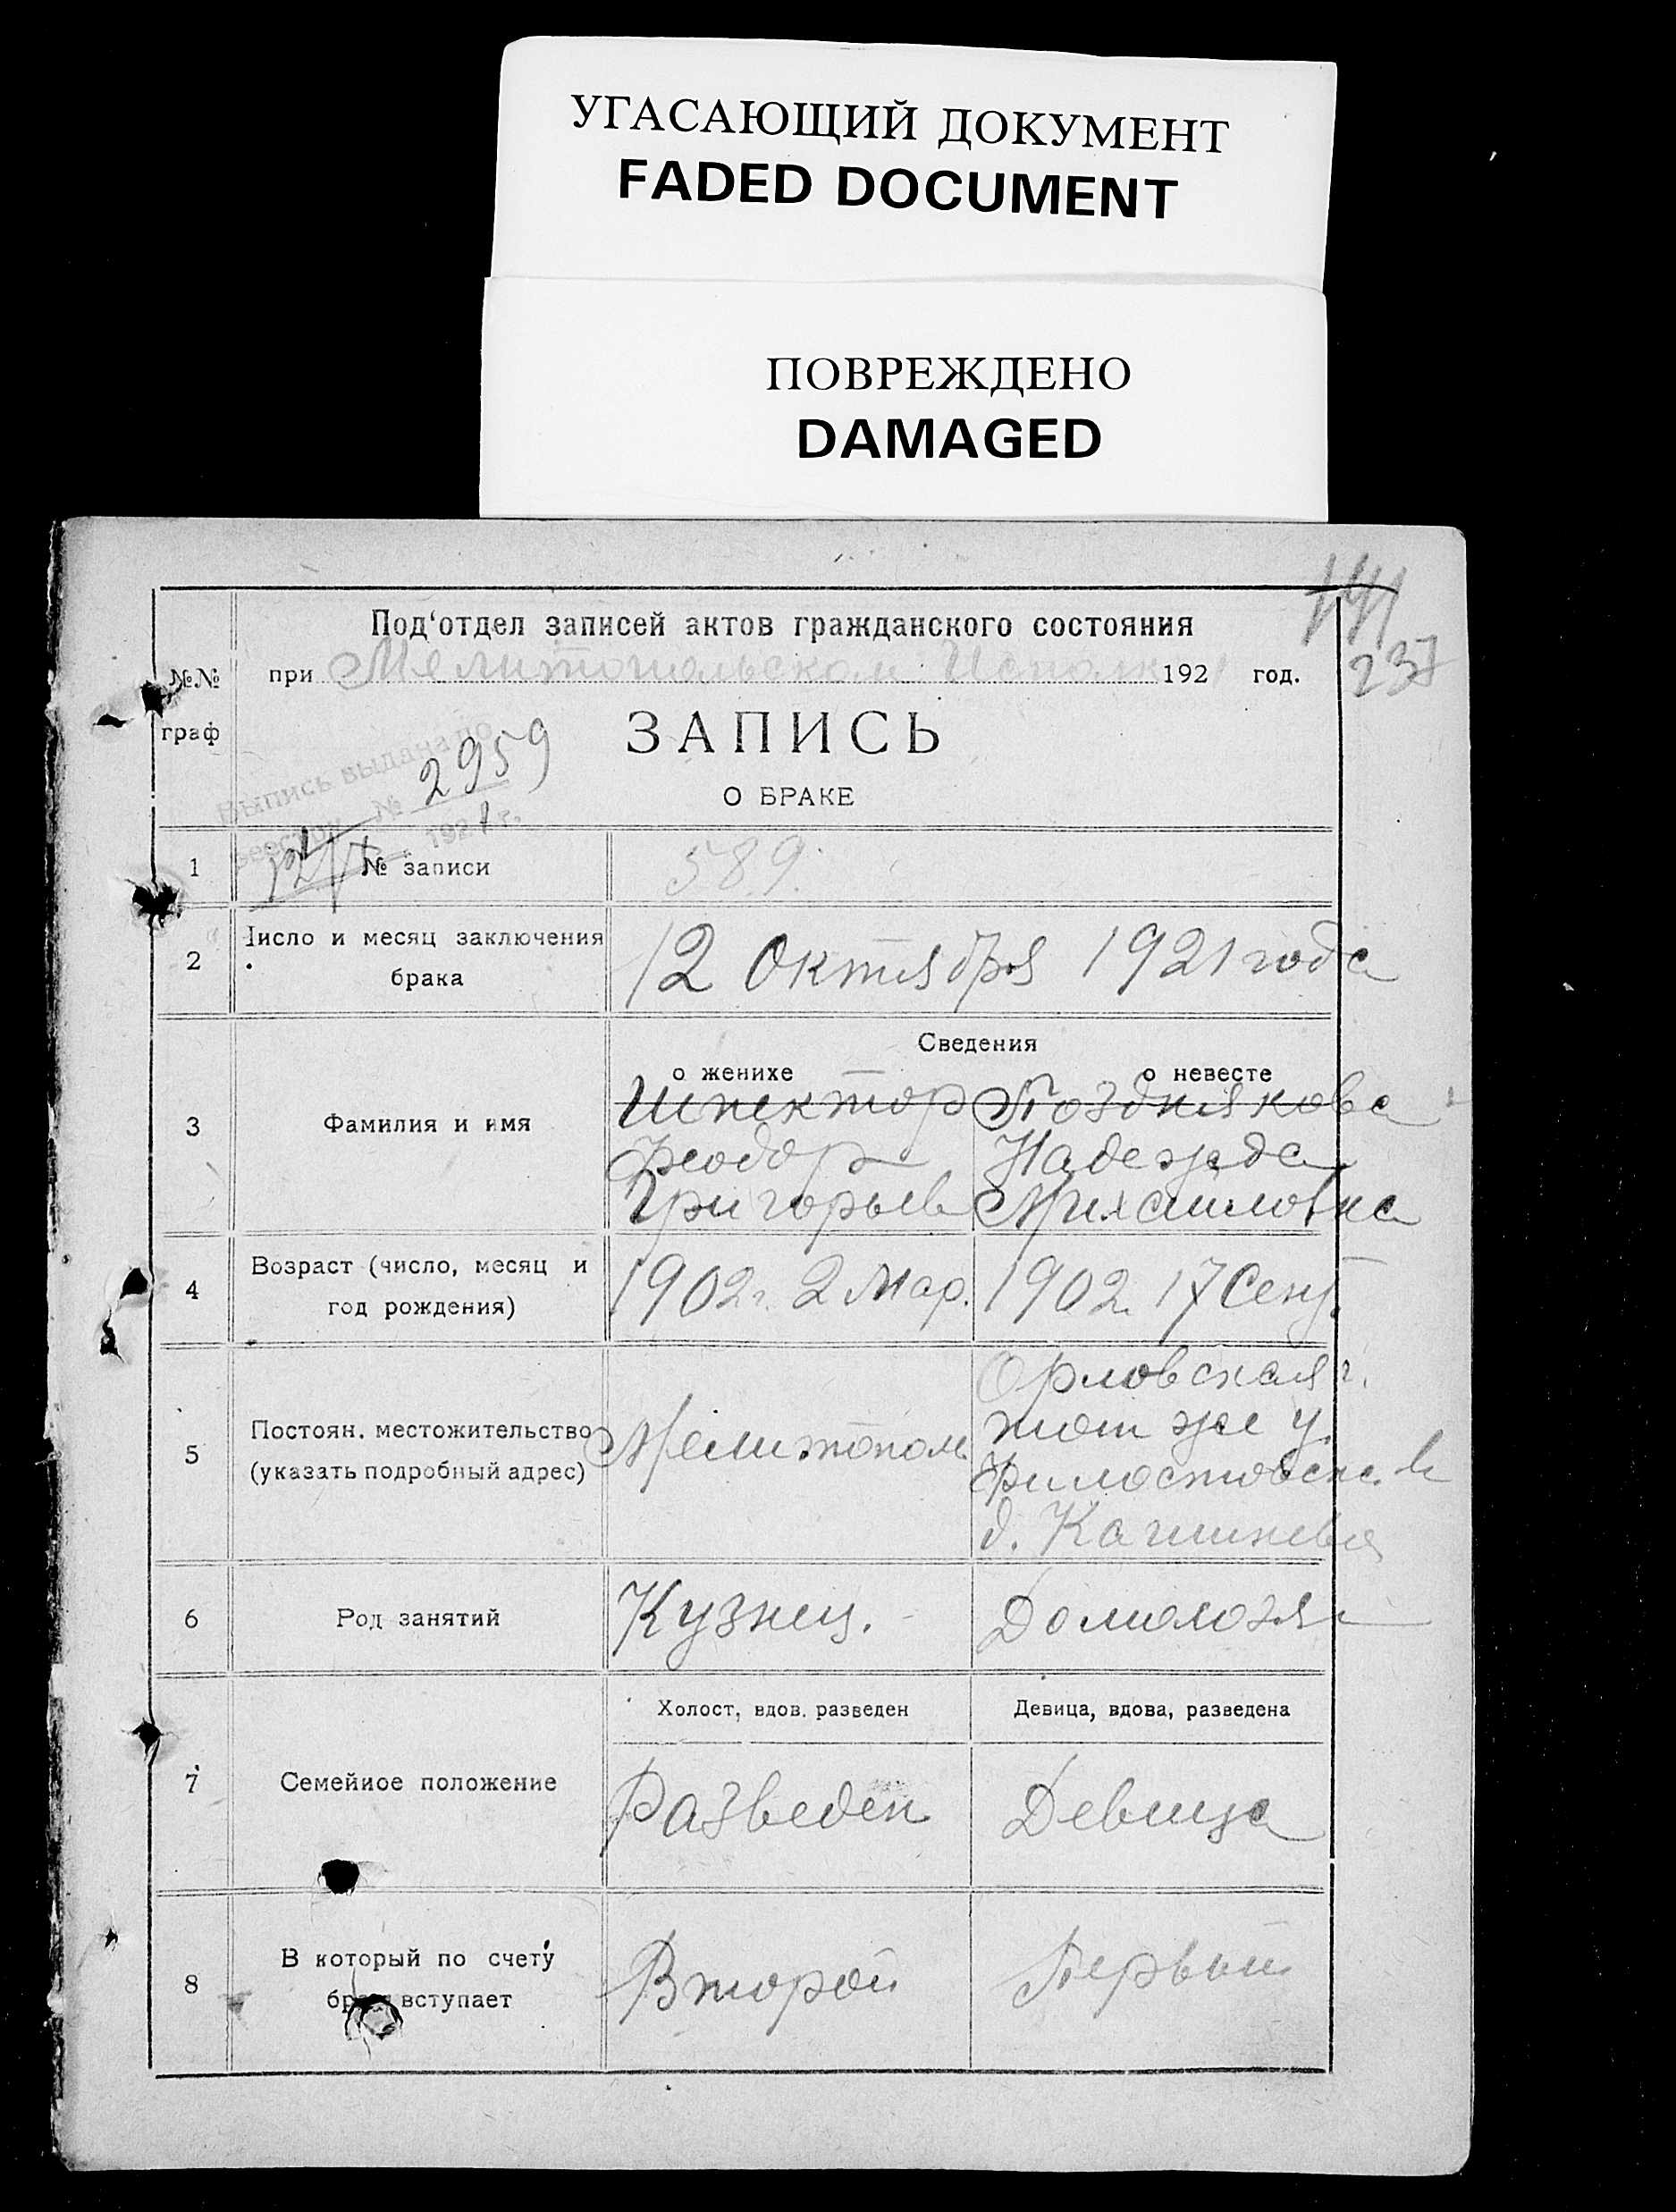 УГАСАЮЩИЙ ДОКУМЕНТ
FADED DOCUMENT
ПОВРЕЖДЕНО
DAMAGED
141
237
№№ граф
Под‘отдел записей актов гражданского состояния
при Мелитопольском Исполк 1921 год.
ЗАПИСЬ
О БРАКЕ
Выпись выдана по
№ 2959
1921 г.
1 № записи 589.
2 Число и месяц заключения брака 12 Октября 1921 года
Сведения
о женихе о невесте
3 Фамилия и имя
Шпектор Позднякова
Феодор Надежда
Григорьев Михайловна
4 Возраст (число, месяц и год рождения) 1902 г. 2 Мар. 1902 17 Сент.
5 Постоян. местожительство (указать подробный адрес)
Мелитополь
Орловская г.
того же у.
д.
6 Род занятий Кузнец. Домохозя
Холост, вдов. разведен Девица, вдова, разведена
7 Семейное положение Разведен Девица
8 В который по счету брак вступает Второй Первый